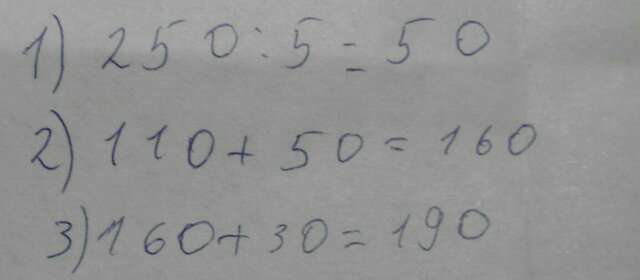 1) 250 : 5 = 50
2) 110 + 50 = 160
3) 160 + 30 = 190